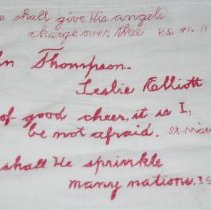 e shall give His angels
charge over thee Ps. 91.11
n Thompson.
Leslie Elliott
of good cheer, it is I,
be not afraid. St. Mar
shall He sprinkle
many nations. IS